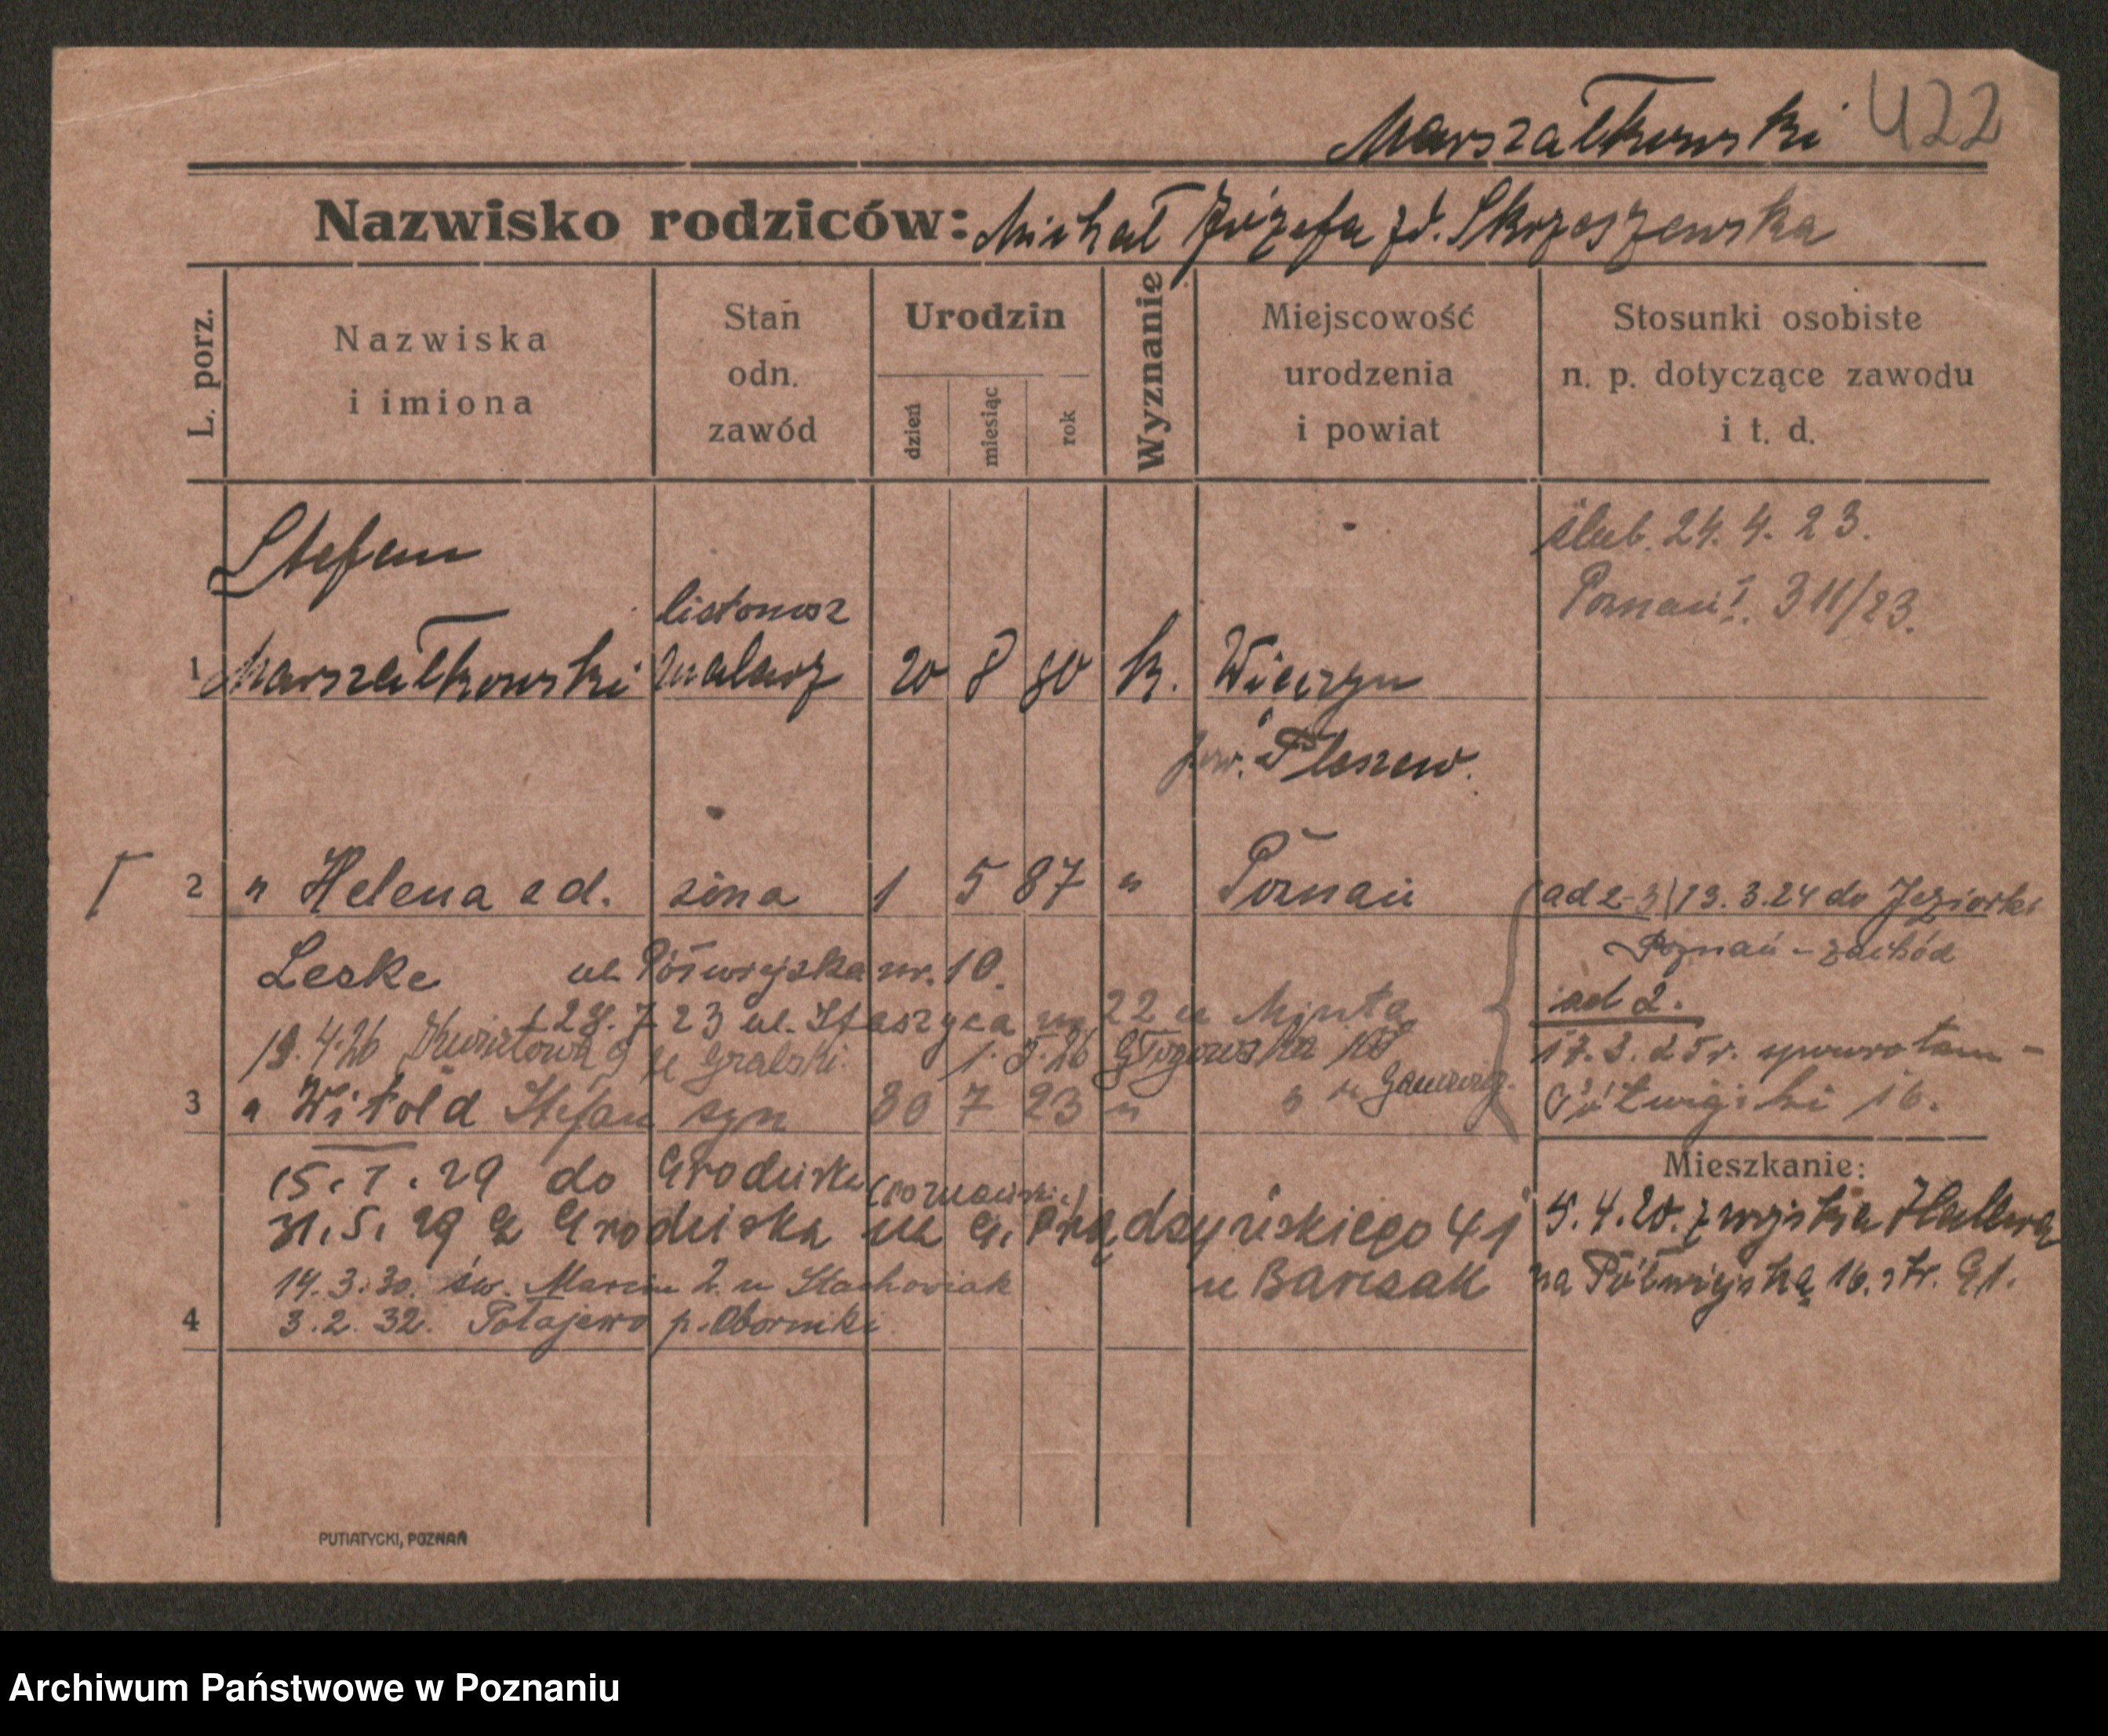 Marszałkowski 422
Nazwisko rodziców: Michał Józefa zd. Skrzeszewska
L. porz.
Nazwiska i imiona
Stan odn. zawód
Urodzin
dzień
miesiąc
rok
Wyznanie
Miejscowość urodzenia i powiat
Stosunki osobiste n. p. dotyczące zawodu i t. d.
Stefan
ślub. 24. 4. 23.
Poznań I. 311/23.
listonosz
1 Marszałkowski malarz 20 8 80 k. Wieczyn
pow. Pleszew.
2 " Helena zd. żona 1 5 87 " Poznań
ad 2-3 13. 3. 24 do Jeziorki
Poznań - zachód
Leske ul. Półwiejska nr. 10.
28. 7 23 ul. Staszyca 22 u
ad 2.
19. 4. 26 9 u Gralski. 1. 5. 26 Głogowska
17. 3. 25 r. spowrotem -
3 " Witold Stefan syn 30 7 23 " "
Półwiejska 16.
15. 1. 29 do Grodziska
Mieszkanie:
31. 5. 29 z Grodziska ul. G. Prądzyńskiego 41
5. 4. 20. z wojska Hallera
14. 3. 30. św. Marcin 2. u Stachowiak
u Banasak
na Półwiejską 16. str. 91.
4 3. 2. 32. Połajewo p. Oborniki
PUTIATYCKI, POZNAŃ
Archiwum Państwowe w Poznaniu